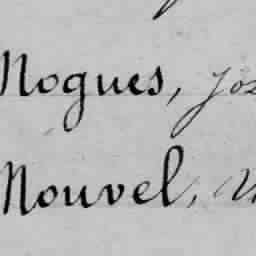 Nogues,
Nouvel,